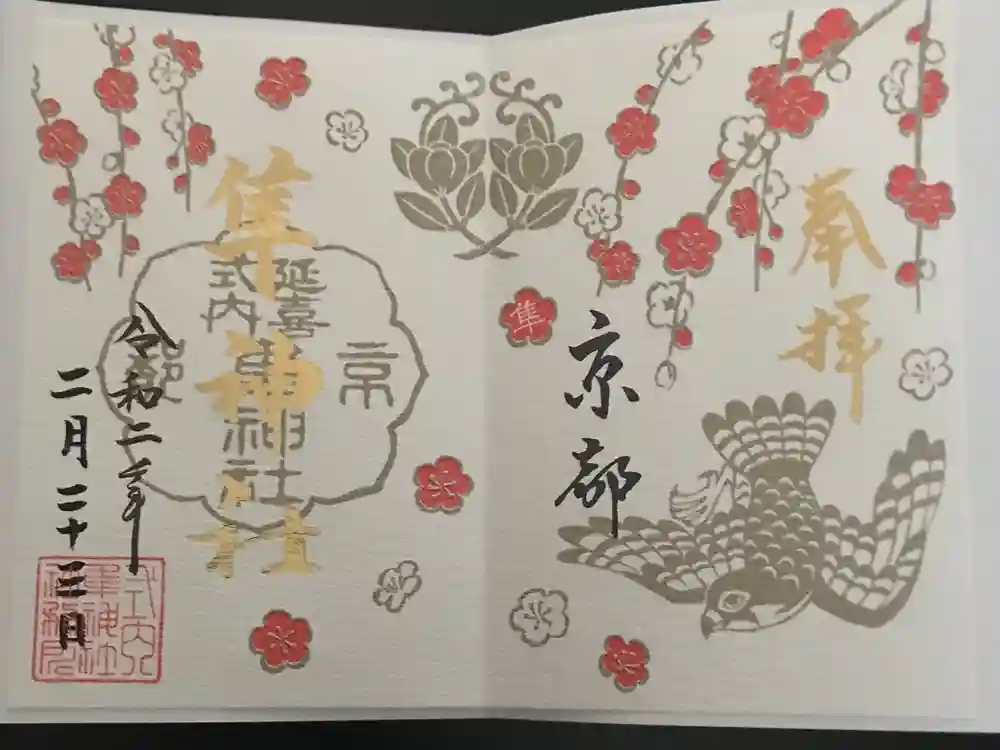 奉拝
京都
隼
隼神社
京都
延喜
式内
隼神社
令和二年
二月二十三日
式内
隼神社